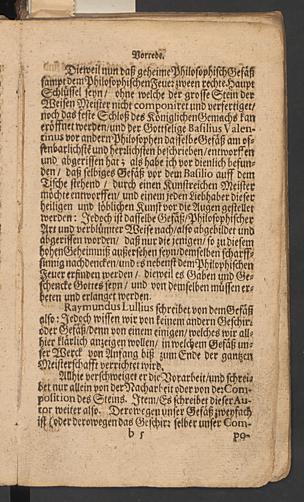 Vorrede.
Dieweil nun daß geheime PhilosophischGefäß
sampt dem Philosophischen Feuer zween rechte Haupt
Schlüssel seyn / ohne welche der grosse Stein der
Weisen Meister nicht componiret und verfertiget /
noch das feste Schloß des Königlichen Gemachs kan
eröffnet werden / und der Gottselige Basilius Valen-
tinus vor andern Philosophen dasselbe Gefäß am of-
fenbarlichste und herzlichsten beschrieben / entworffen
und abgerissen hat; als habe ich vor dienlich befun-
den / daß selbiges Gefäß vor dem Basilio auff dem
Tische stehend / durch einen Kunstreichen Meister
möchte entworffen / und einem jeden Liebhaber dieser
heiligen und löblichen Kunst vor die Augen gestellet
werden: Jedoch ist dasselbe Gefäß / Philosophischer
Art und verblümter Weise nach / also abgebildet und
abgerissen worden / daß nur die jenigen / so zu diesem
hohen Geheimniß außersehen seyn / demselben scharff-
sinnig nachdencken / und es nebenst dem Philophischen
Feuer erfinden werden / dieweil es Gaben und Ge-
schencke Gottes seyn / und von demselben müssen er-
beten und erlanget werden.
Raymundus Lullius schreibet von dem Gefäß
also: Jedoch wissen wir von keinem andern Geschirr
oder Gefäß / denn von einem einigen / welches wir all-
hier klärlich anzeigen wollen / in welchem Gefäß un-
ser Werck von Anfang biß zum Ende der gantzen
Meisterschafft verrichtet wird.
Alhie verschweiget er die Vorarbeit / und schrei-
bet nur allein von der Nacharbeit oder von der Com-
position des Steins. Item / Es schreibet dieser Au-
tor weiter also. Derowegen unser Gefäß zweyfach
ist (oder derowegen das Geschirr selber unser Com-
b 5
po-